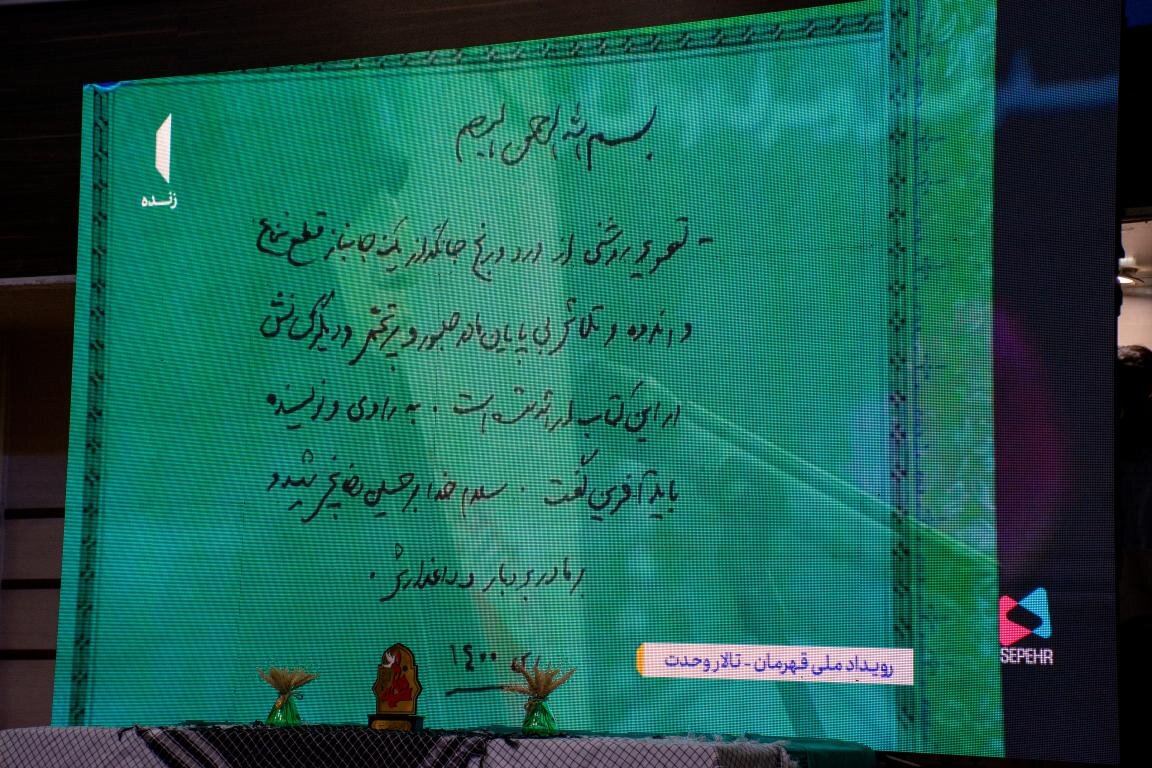 بسم الله الرحمن الرحیم
- تصویر روشنی از درد و رنج جانگداز یک جانباز قطع نخاع
و اندوه و تلاش بی پایان مادر صبور و پرتحمل و دیگر کسانش
در این کتاب ارائه شده است. به راوی و نویسنده
باید آفرین گفت. سلام خدا بر حسین شهید و
بر مادر بردبار و داغدارش.
۱۴۰۰
زنده
رویداد ملی قهرمان - تالار وحدت
SEPEHR